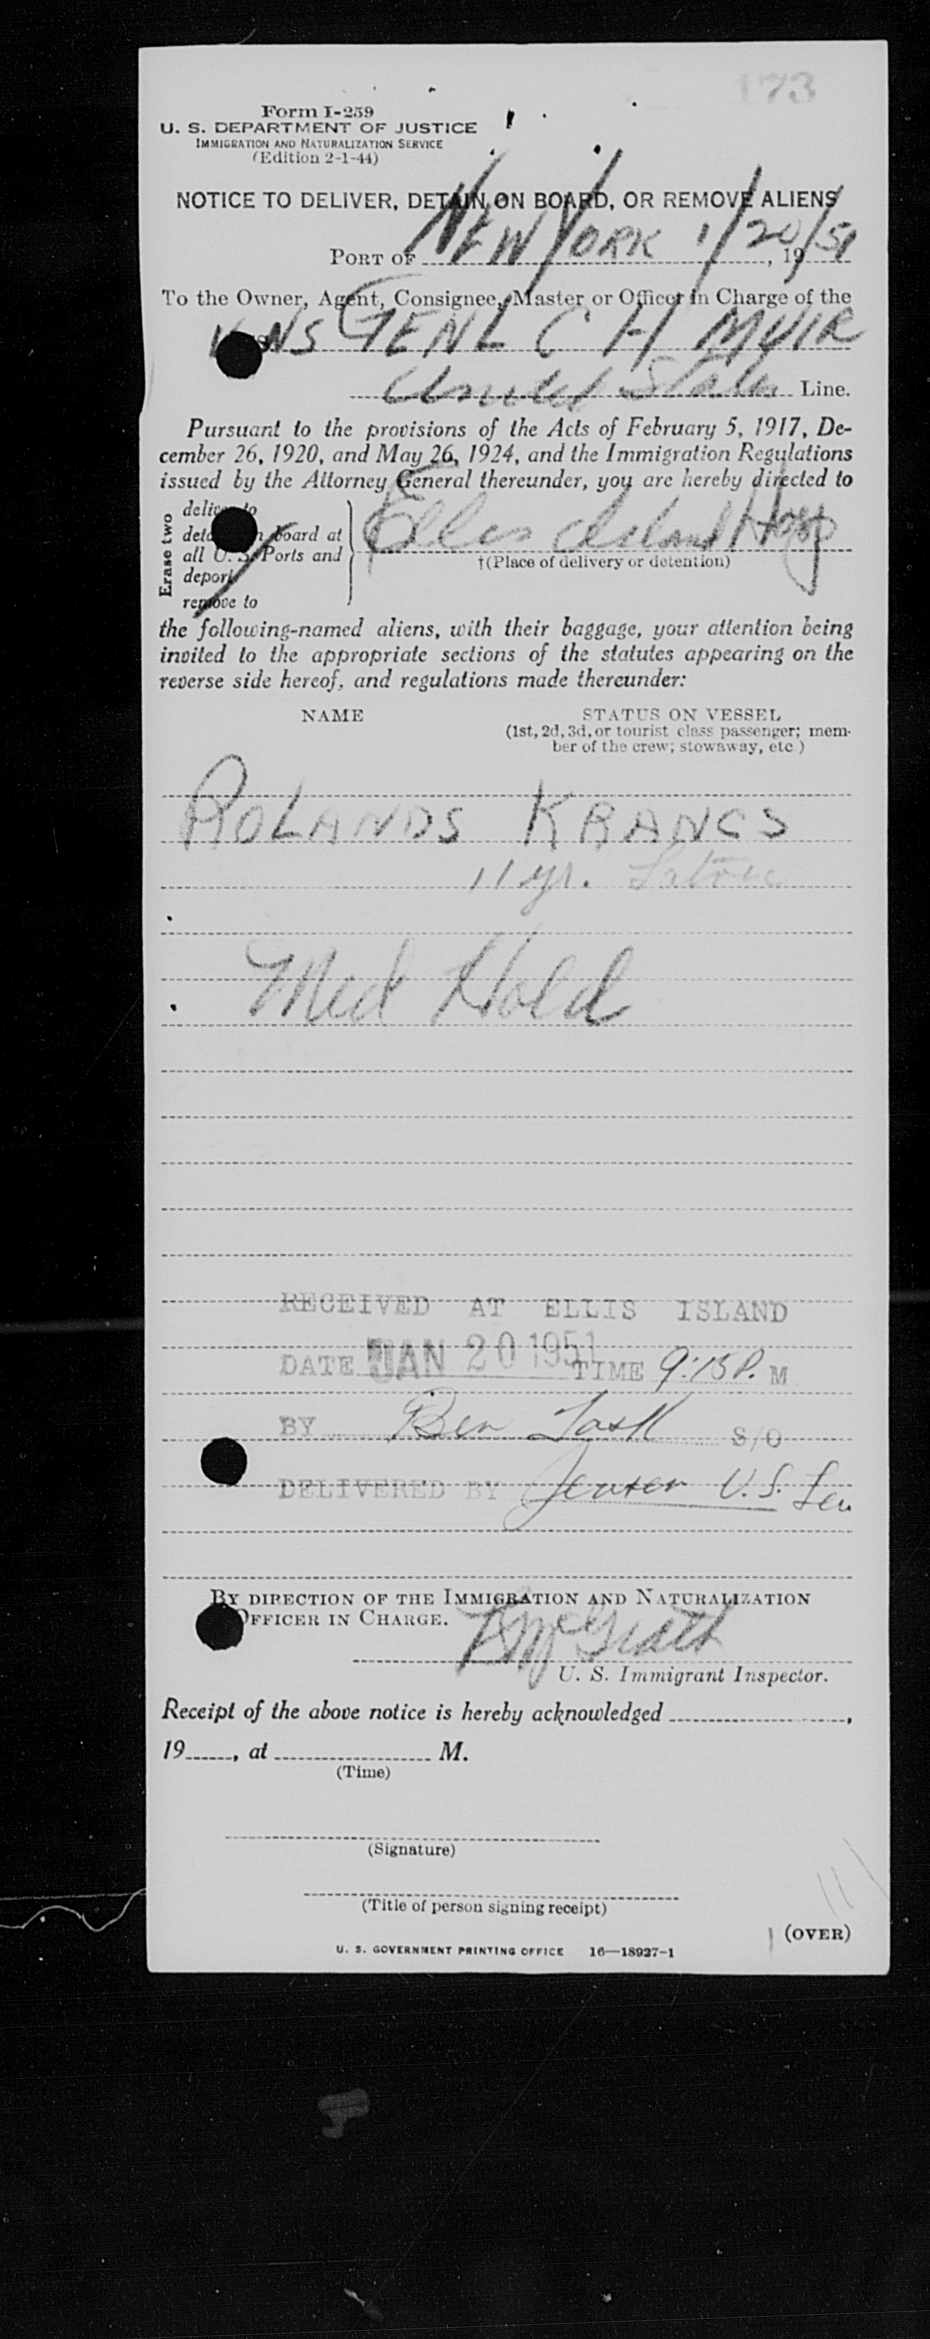 173
Form I-259
U. S. DEPARTMENT OF JUSTICE
IMMIGRATION AND NATURALIZATION SERVICE
(Edition 2-1-44)
NOTICE TO DELIVER, DETAIN ON BOARD, OR REMOVE ALIENS
PORT OF NEW YORK 1/20/51, 19
To the Owner, Agent, Consignee, Master or Officer in Charge of the
NS GENL C H MUIR
United States Line.
Pursuant to the provisions of the Acts of February 5, 1917, De-
cember 26, 1920, and May 26, 1924, and the Immigration Regulations
issued by the Attorney General thereunder, you are hereby directed to
Erase two
deliver to
detain on board at
all U. S. Ports and
deport
remove to
Ellis Island Hosp
†(Place of delivery or detention)
the following-named aliens, with their baggage, your attention being
invited to the appropriate sections of the statutes appearing on the
reverse side hereof, and regulations made thereunder:
NAME STATUS ON VESSEL
(1st, 2d, 3d, or tourist class passenger; mem-
ber of the crew; stowaway, etc.)
ROLANDS KRANCS
11 yr.
Med Hold
RECEIVED AT ELLIS ISLAND
DATE JAN 20 1951 TIME 9:15 P. M
BY Ben S/O
DELIVERED BY Jensen U.S.
BY DIRECTION OF THE IMMIGRATION AND NATURALIZATION
OFFICER IN CHARGE.
McGrath
U. S. Immigrant Inspector.
Receipt of the above notice is hereby acknowledged ,
19 , at M.
(Time)
(Signature)
(Title of person signing receipt)
(OVER)
U. S. GOVERNMENT PRINTING OFFICE 16—18927-1